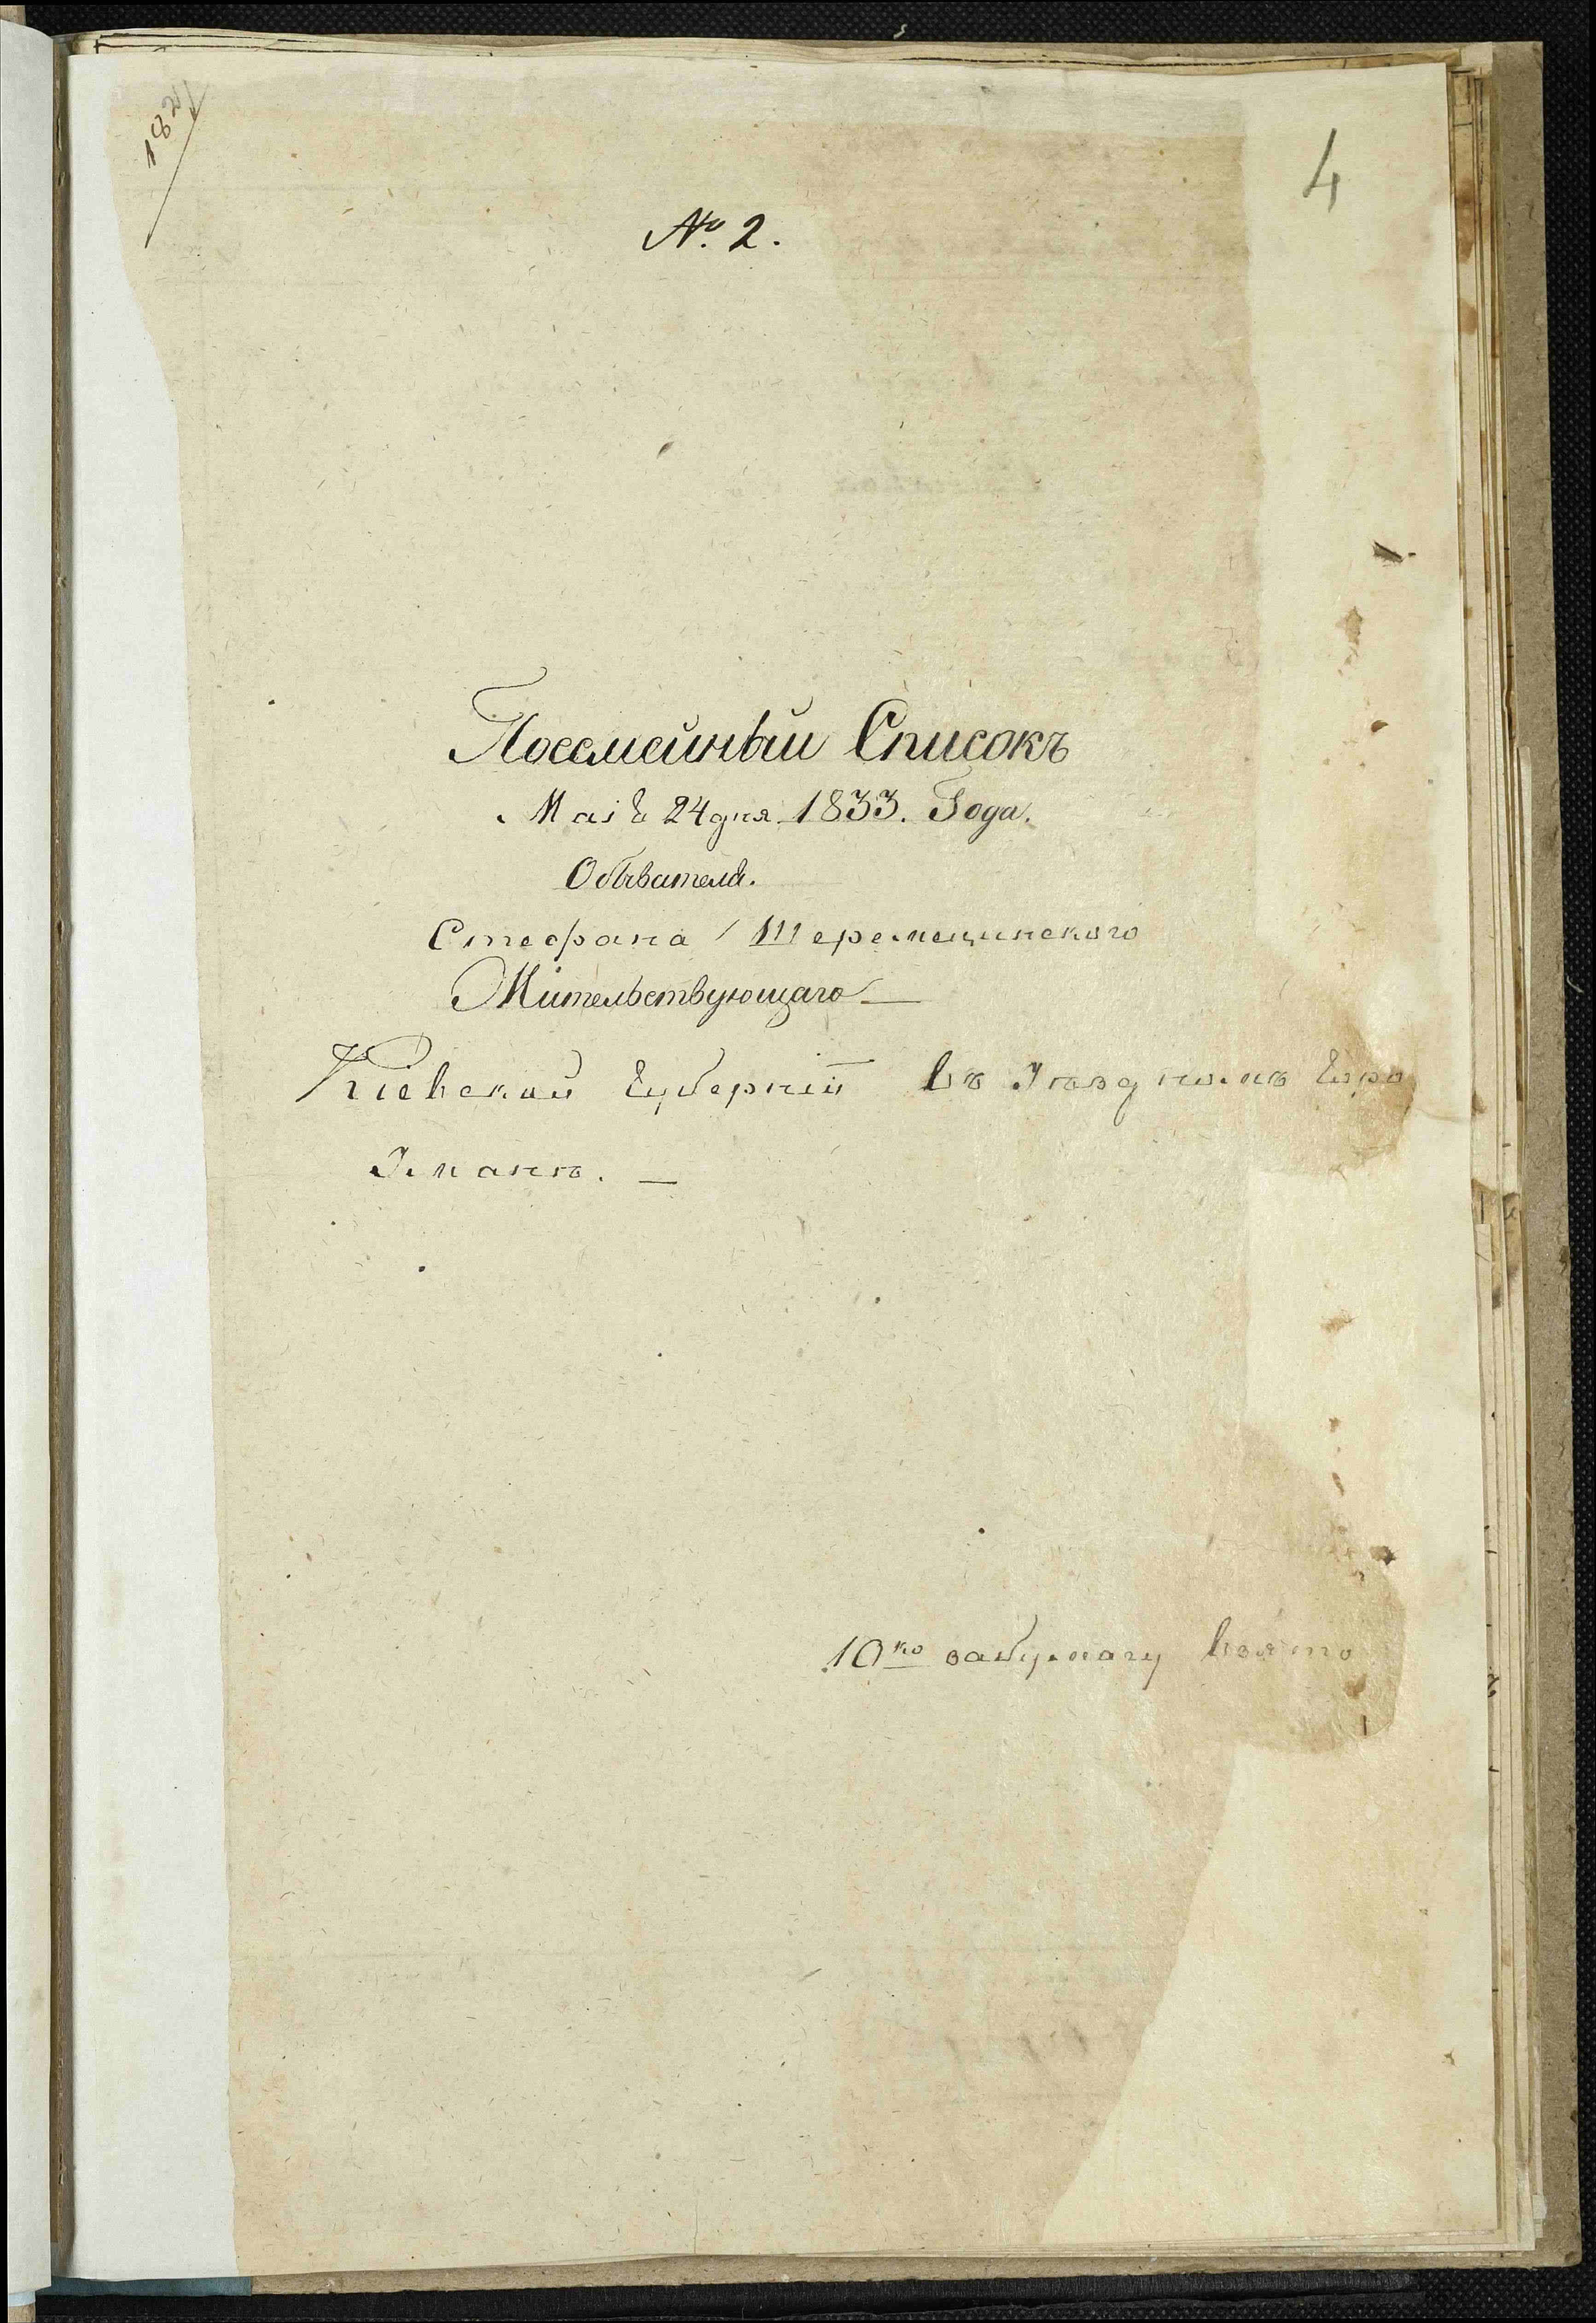 182
4
№ 2.
Посемейный Списокъ
Маія 24 дня 1833. Года.
Обывателя.
Стефана Шеремецинского
Жительствующаго
Кіевской Губерніи въ Уѣздномъ Горо
Уманѣ. —
10ко забумагу взято